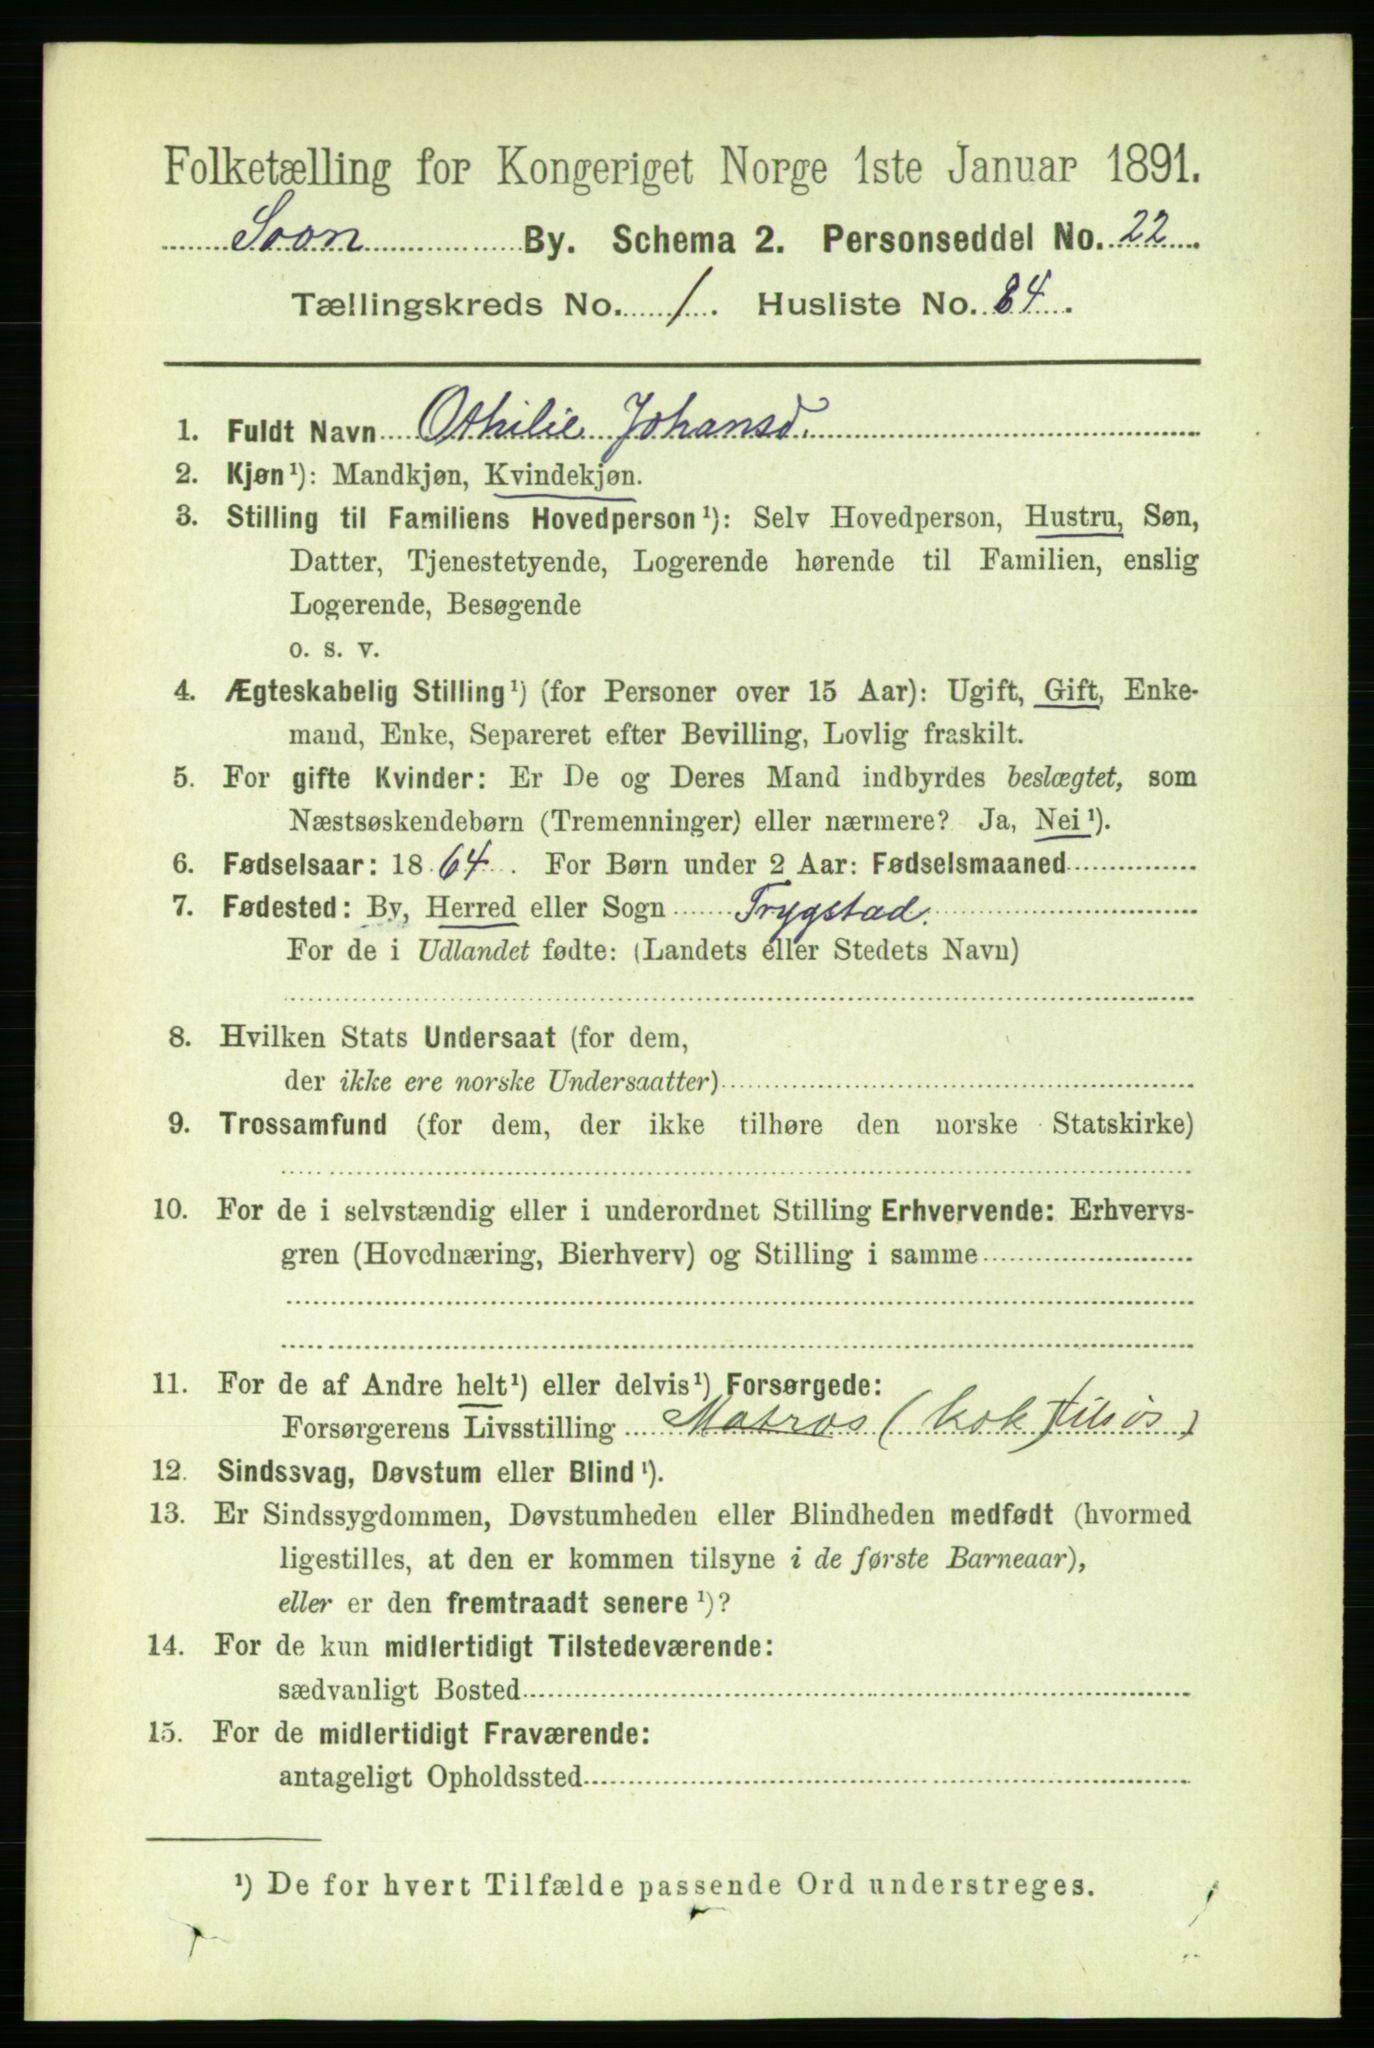 Folketælling for Kongeriget Norge 1ste Januar 1891.
Soon By. Schema 2. Personseddel No. 22
Tællingskreds No. 1. Husliste No. 84.
1. Fuldt Navn Othilie Johansd.
2. Kjøn¹): Mandkjøn, Kvindekjøn.
3. Stilling til Familiens Hovedperson¹): Selv Hovedperson, Hustru, Søn,
Datter, Tjenestetyende, Logerende hørende til Familien, enslig
Logerende, Besøgende
o. s. v.
4. Ægteskabelig Stilling¹) (for Personer over 15 Aar): Ugift, Gift, Enke-
mand, Enke, Separeret efter Bevilling, Lovlig fraskilt.
5. For gifte Kvinder: Er De og Deres Mand indbyrdes beslægtet, som
Næstsøskendebørn (Tremenninger) eller nærmere? Ja, Nei¹).
6. Fødselsaar: 1864. For Børn under 2 Aar: Fødselsmaaned
7. Fødested: By, Herred eller Sogn Trygstad.
For de i Udlandet fødte: (Landets eller Stedets Navn)
8. Hvilken Stats Undersaat (for dem,
der ikke ere norske Undersaatter)
9. Trossamfund (for dem, der ikke tilhøre den norske Statskirke)
10. For de i selvstændig eller i underordnet Stilling Erhvervende: Erhvervs-
gren (Hovednæring, Bierhverv) og Stilling i samme
11. For de af Andre helt¹) eller delvis¹) Forsørgede:
Forsørgerens Livsstilling Matros (kok tilsøs)
12. Sindssvag, Døvstum eller Blind¹).
13. Er Sindssygdommen, Døvstumheden eller Blindheden medfødt (hvormed
ligestilles, at den er kommen tilsyne i de første Barneaar),
eller er den fremtraadt senere¹)?
14. For de kun midlertidigt Tilstedeværende:
sædvanligt Bosted
15. For de midlertidigt Fraværende:
antageligt Opholdssted
¹) De for hvert Tilfælde passende Ord understreges.